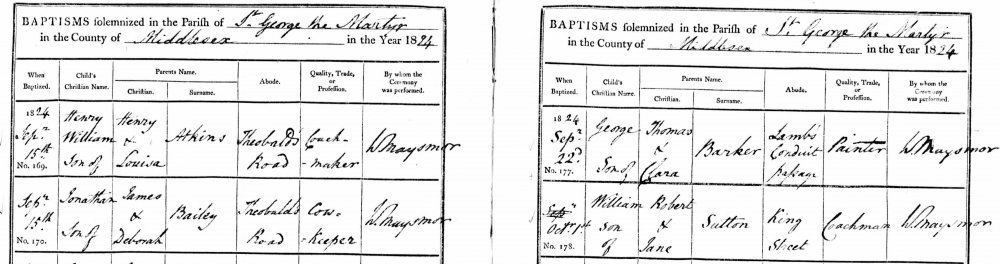 BAPTISMS solemnized in the Parish of St. George the Martyr
in the County of Middlesex in the Year 1824
When Baptized. Child's Christian Name. Parents Name. Christian. Surname. Abode. Quality, Trade, or Profession. By whom the Ceremony was performed.
1824 Sepr 15th No. 169. Henry William Son of Henry & Louisa Atkins Theobalds Road Coach-maker W. Maysmor
Sepr 15th No. 170. Jonathan Son of James & Deborah Bailey Theobald's Road Cow-Keeper W. Maysmor
BAPTISMS solemnized in the Parish of St. George the Martyr
in the County of Middlesex in the Year 1824
When Baptized. Child's Christian Name. Parents Name. Christian. Surname. Abode. Quality, Trade, or Profession. By whom the Ceremony was performed.
1824 Sepr 22d. No. 177. George Son of Thomas & Clara Barker Lamb's Conduit Passage Painter W. Maysmor
Sepr Octr 1st No. 178. William Son of Robert & Jane Sutton King Street Coachman W. Maysmor